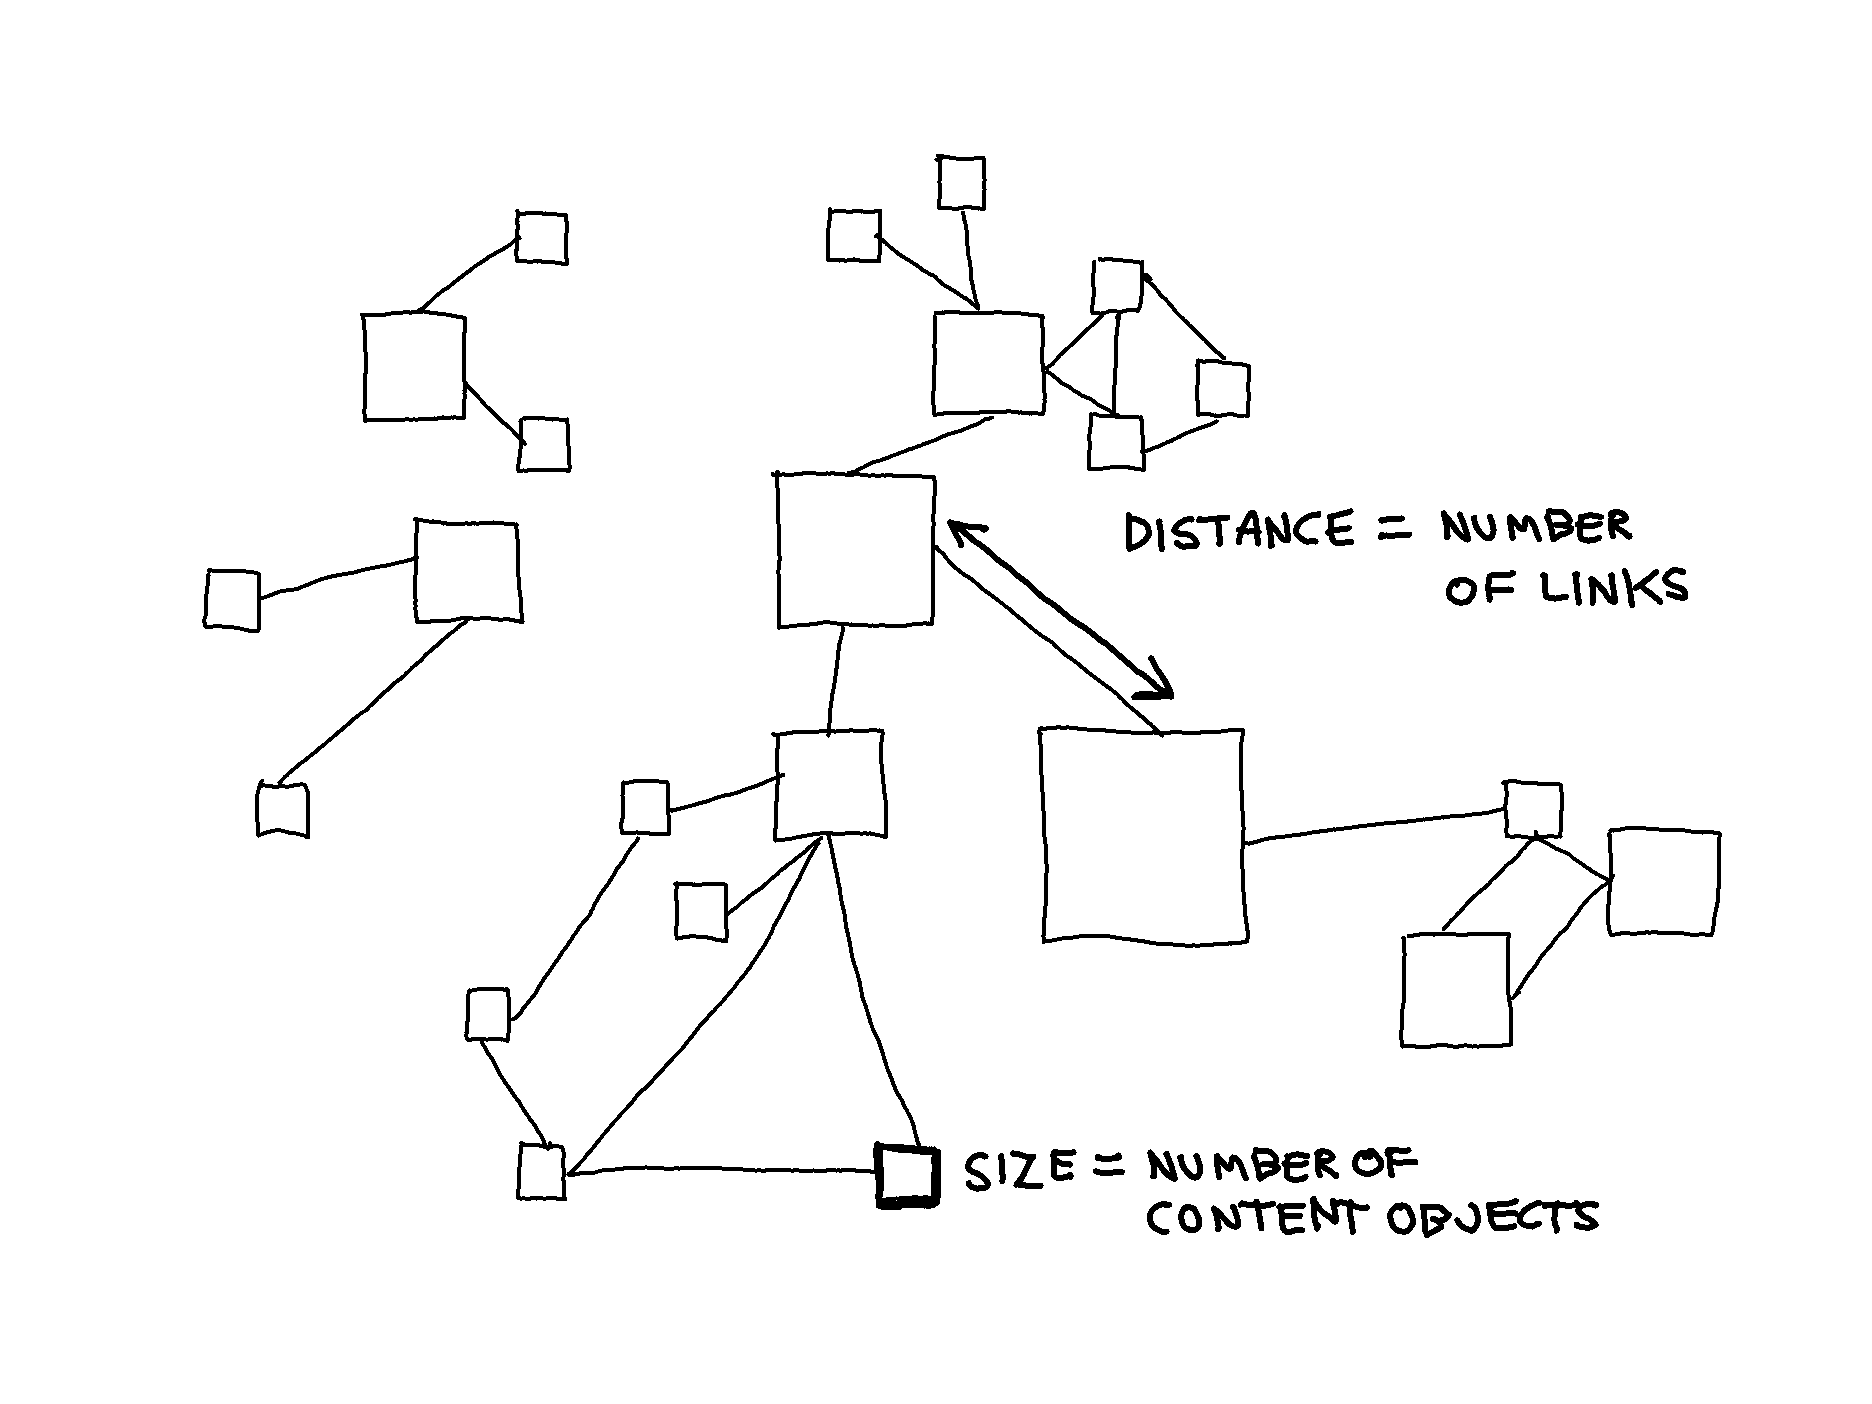 DISTANCE = NUMBER
OF LINKS
SIZE = NUMBER OF
CONTENT OBJECTS